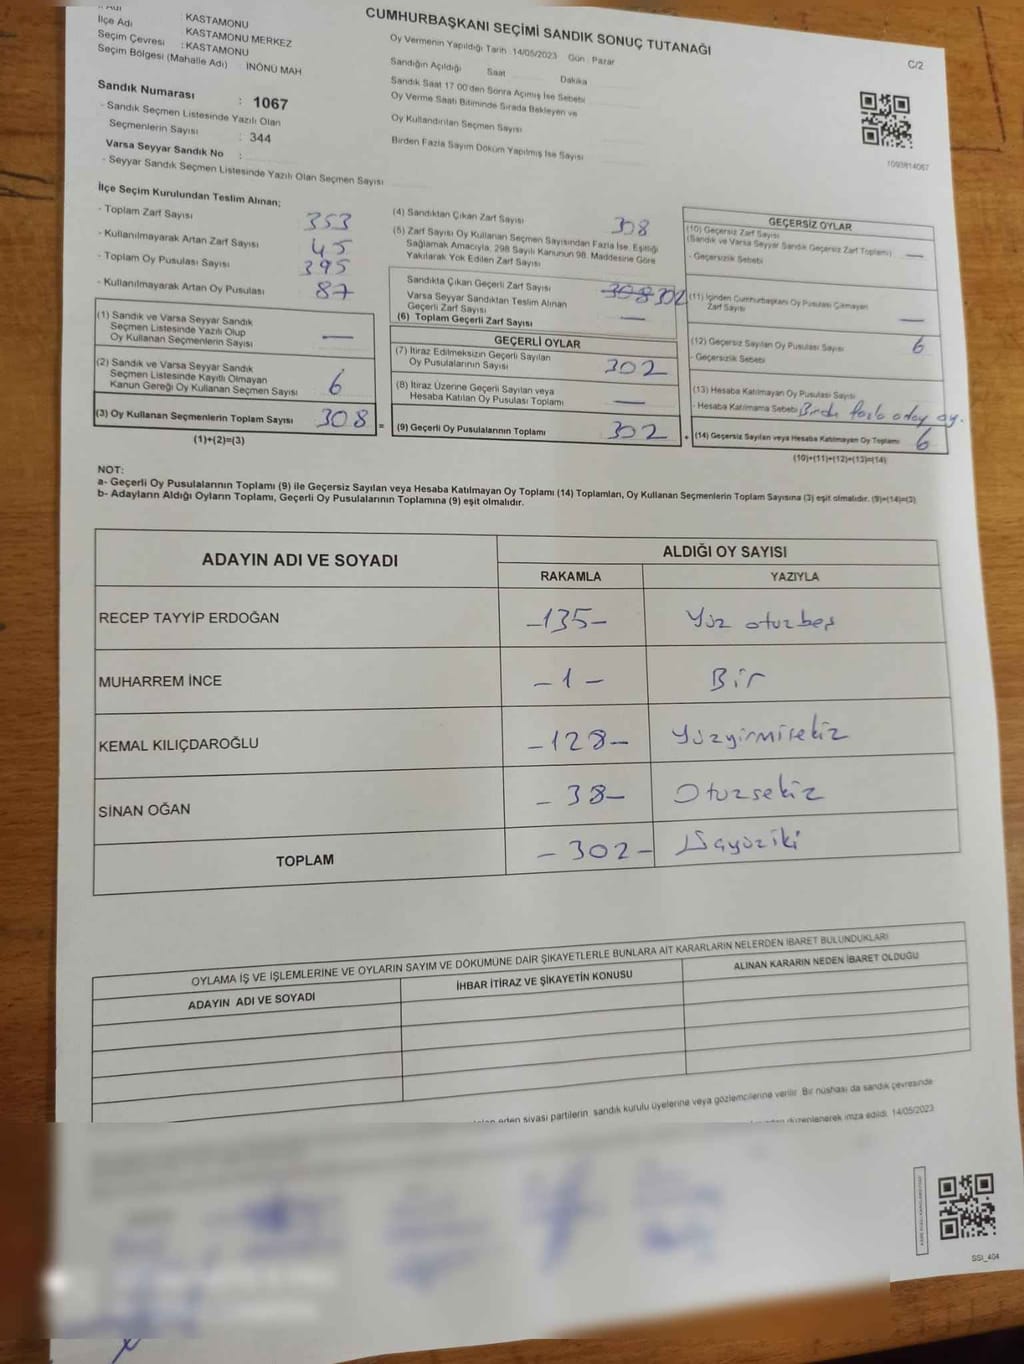 CUMHURBAŞKANI SEÇİMİ SANDIK SONUÇ TUTANAĞI
C/2
İlçe Adı : KASTAMONU
KASTAMONU MERKEZ
Seçim Çevresi : KASTAMONU
Seçim Bölgesi (Mahalle Adı) : İNÖNÜ MAH
Sandık Numarası : 1067
- Sandık Seçmen Listesinde Yazılı Olan
Seçmenlerin Sayısı : 344
Varsa Seyyar Sandık No :
- Seyyar Sandık Seçmen Listesinde Yazılı Olan Seçmen Sayısı
Oy Vermenin Yapıldığı Tarih 14/05/2023 Gün : Pazar
Sandığın Açıldığı Saat Dakika
Sandık Saat 17 00'den Sonra Açılmış İse Sebebi
Oy Verme Saati Bitiminde Sırada Bekleyen ve
Oy Kullandırılan Seçmen Sayısı
Birden Fazla Sayım Döküm Yapılmış İse Sayısı
1093814067
İlçe Seçim Kurulundan Teslim Alınan;
- Toplam Zarf Sayısı 353
- Kullanılmayarak Artan Zarf Sayısı 45
- Toplam Oy Pusulası Sayısı 395
- Kullanılmayarak Artan Oy Pusulası 87
(1) Sandık ve Varsa Seyyar Sandık
Seçmen Listesinde Yazılı Olup
Oy Kullanan Seçmenlerin Sayısı —
(2) Sandık ve Varsa Seyyar Sandık
Seçmen Listesinde Kayıtlı Olmayan
Kanun Gereği Oy Kullanan Seçmen Sayısı 6
(3) Oy Kullanan Seçmenlerin Toplam Sayısı 308 =
(1)+(2)=(3)
(4) Sandıktan Çıkan Zarf Sayısı 308
(5) Zarf Sayısı Oy Kullanan Seçmen Sayısından Fazla İse, Eşitliği
Sağlamak Amacıyla, 298 Sayılı Kanunun 98. Maddesine Göre
Yakılarak Yok Edilen Zarf Sayısı
Sandıkta Çıkan Geçerli Zarf Sayısı 308 302
Varsa Seyyar Sandıktan Teslim Alınan
Geçerli Zarf Sayısı —
(6) Toplam Geçerli Zarf Sayısı
GEÇERLİ OYLAR
(7) İtiraz Edilmeksizin Geçerli Sayılan
Oy Pusulalarının Sayısı 302
(8) İtiraz Üzerine Geçerli Sayılan veya
Hesaba Katılan Oy Pusulası Toplamı —
(9) Geçerli Oy Pusulalarının Toplamı 302 +
GEÇERSİZ OYLAR
(10) Geçersiz Zarf Sayısı
(Sandık ve Varsa Seyyar Sandık Geçersiz Zarf Toplamı) —
- Geçersizlik Sebebi
(11) İçinden Cumhurbaşkanı Oy Pusulası Çıkmayan
Zarf Sayısı —
(12) Geçersiz Sayılan Oy Pusulası Sayısı 6
- Geçersizlik Sebebi
(13) Hesaba Katılmayan Oy Pusulası Sayısı
- Hesaba Katılmama Sebebi Birden fazla aday oy.
(14) Geçersiz Sayılan veya Hesaba Katılmayan Oy Toplamı 6
(10)+(11)+(12)+(13)=(14)
NOT:
a- Geçerli Oy Pusulalarının Toplamı (9) ile Geçersiz Sayılan veya Hesaba Katılmayan Oy Toplamı (14) Toplamları, Oy Kullanan Seçmenlerin Toplam Sayısına (3) eşit olmalıdır. (9)+(14)=(3)
b- Adayların Aldığı Oyların Toplamı, Geçerli Oy Pusulalarının Toplamına (9) eşit olmalıdır.
ADAYIN ADI VE SOYADI ALDIĞI OY SAYISI
RAKAMLA YAZIYLA
RECEP TAYYİP ERDOĞAN -135- Yüz otuzbeş
MUHARREM İNCE -1- Bir
KEMAL KILIÇDAROĞLU -128- Yüzyirmisekiz
SİNAN OĞAN -38- Otuzsekiz
TOPLAM -302- Üçyüziki
OYLAMA İŞ VE İŞLEMLERİNE VE OYLARIN SAYIM VE DÖKÜMÜNE DAİR ŞİKAYETLERLE BUNLARA AİT KARARLARIN NELERDEN İBARET BULUNDUKLARI
ADAYIN ADI VE SOYADI İHBAR İTİRAZ VE ŞİKAYETİN KONUSU ALINAN KARARIN NEDEN İBARET OLDUĞU
eden siyasi partilerin sandık kurulu üyelerine veya gözlemcilerine verilir. Bir nüshası da sandık çevresinde
düzenlenerek imza edildi. 14/05/2023
SSI_404